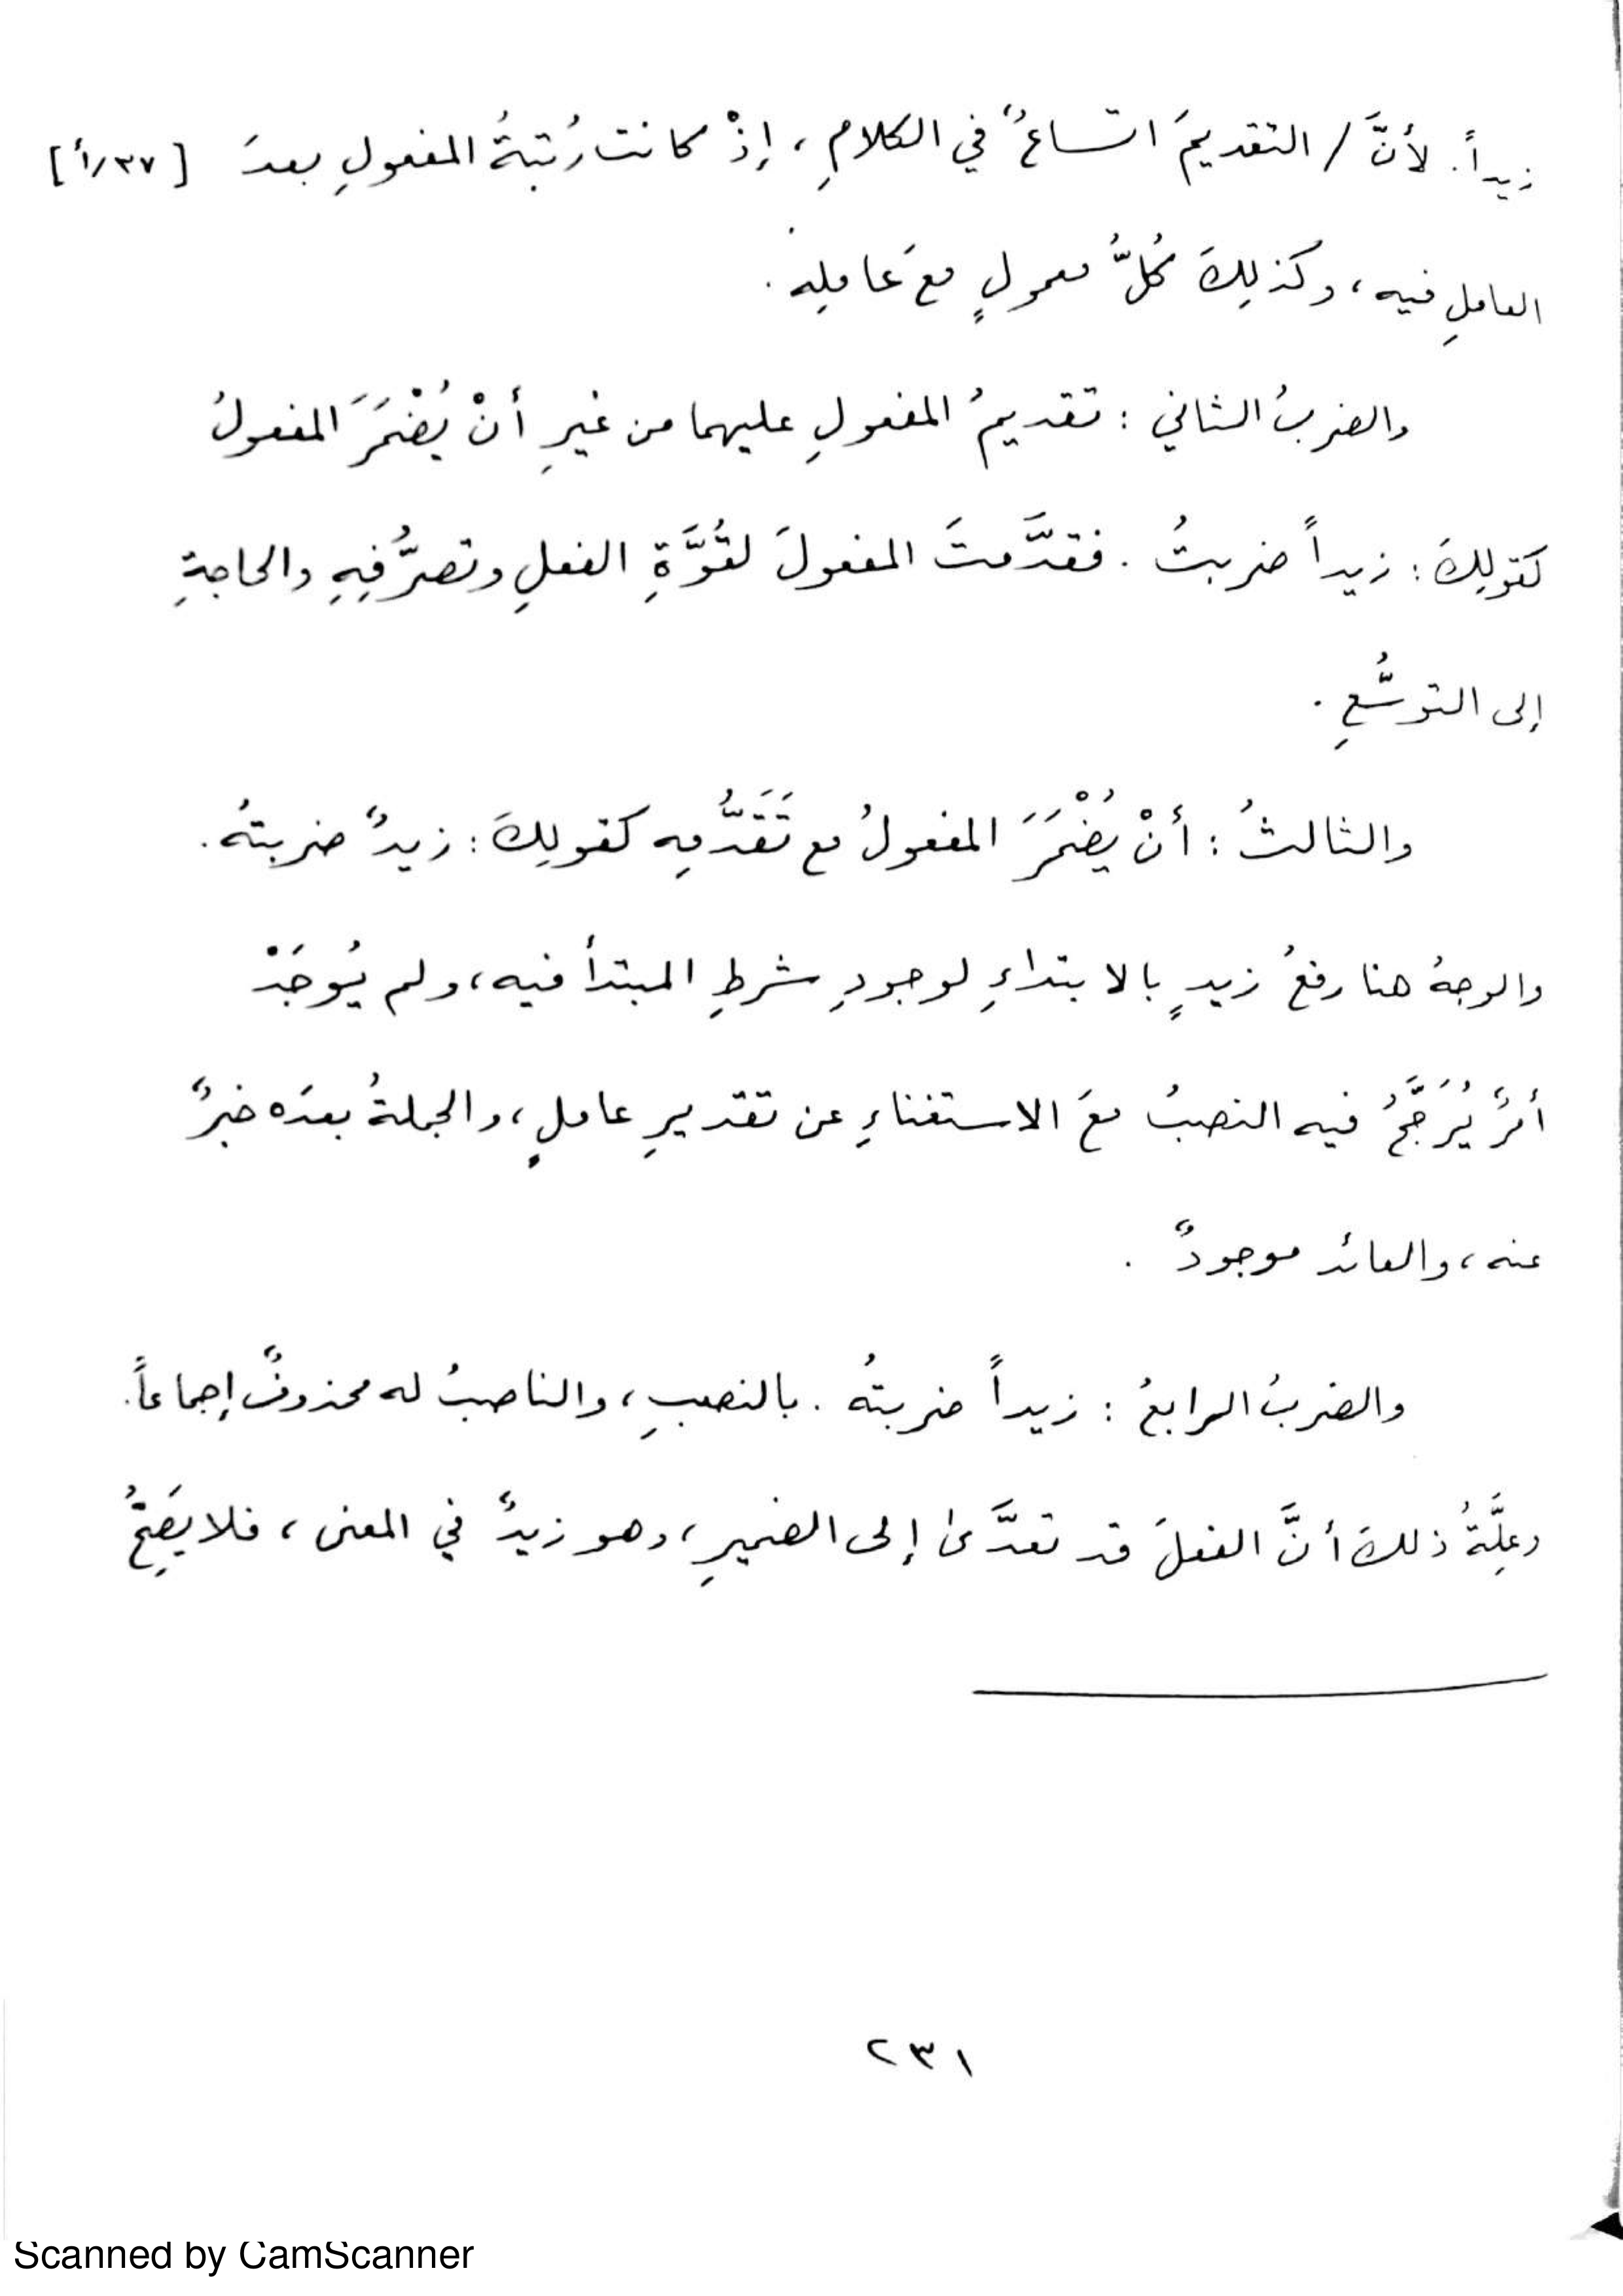 زيداً. لأنَّ / التقديمَ اتساعٌ في الكلامِ ، إذْ كانت رُتبةُ المفعولِ بعدَ [ ٣٧/أ ]
العاملِ فيه ، وكذلِكَ كُلُّ معمولٍ معَ عاملِه .
والضربُ الثاني : تقديمُ المفعولِ عليهما من غيرِ أنْ يُضْمَرَ المفعولُ
كقولِكَ : زيداً ضربتُ . فقدَّمتَ المفعولَ لقُوَّةِ الفعلِ وتصرُّفِهِ والحاجةِ
إلى التوسُّعِ .
والثالثُ : أنْ يُضْمَرَ المفعولُ مع تَقَدُّمِه كقولِكَ : زيدٌ ضربتهُ .
والوجهُ هنا رفعُ زيدٍ بالابتداءِ لوجودِ شرطِ المبتدأ فيه ، ولم يُوجَدْ
أمرٌ يُرَجَّحُ فيه النصبُ معَ الاستغناءِ عن تقديرِ عاملٍ ، والجملةُ بعدَه خبرٌ
عنه ، والعائد موجودٌ .
والضربُ الرابعُ : زيداً ضربتهُ . بالنصبِ ، والناصبُ له محذوفٌ إجماعاً .
وعِلَّةُ ذلكَ أنَّ الفعلَ قد تعدَّىٰ إلى الضميرِ ، وهو زيدٌ في المعنى ، فلا يصَِحُّ
٢٣١
Scanned by CamScanner